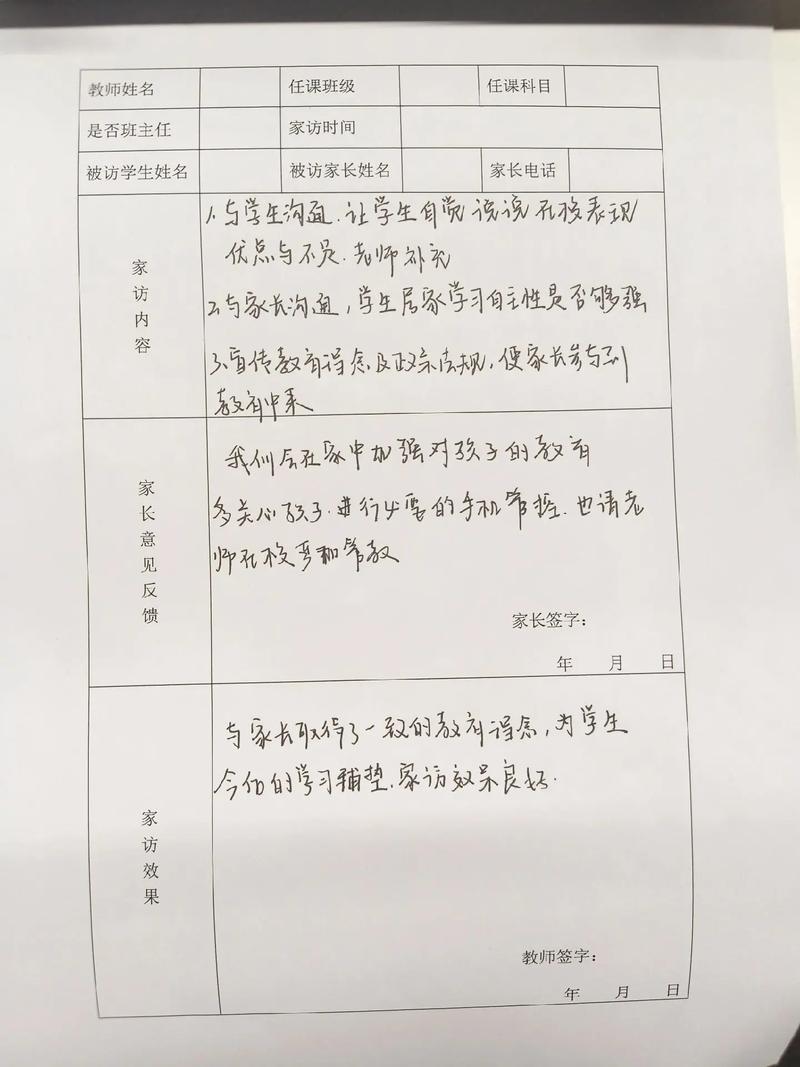 教师姓名 任课班级 任课科目
是否班主任 家访时间
被访学生姓名 被访家长姓名 家长电话
家访内容
1.与学生沟通.让学生自觉说说在校表现
优点与不足.老师补充
2.与家长沟通，学生居家学习自主性是否够强
3.宣传教育理念及政策法规，使家长参与到
教育中来
家长意见反馈
我们会在家中加强对孩子的教育
多关心孩子.进行必要的手机管控.也请老
师在校严加管教
家长签字：
年 月 日
家访效果
与家长取得了一致的教育理念，为学生
今后的学习铺垫.家访效果良好.
教师签字：
年 月 日